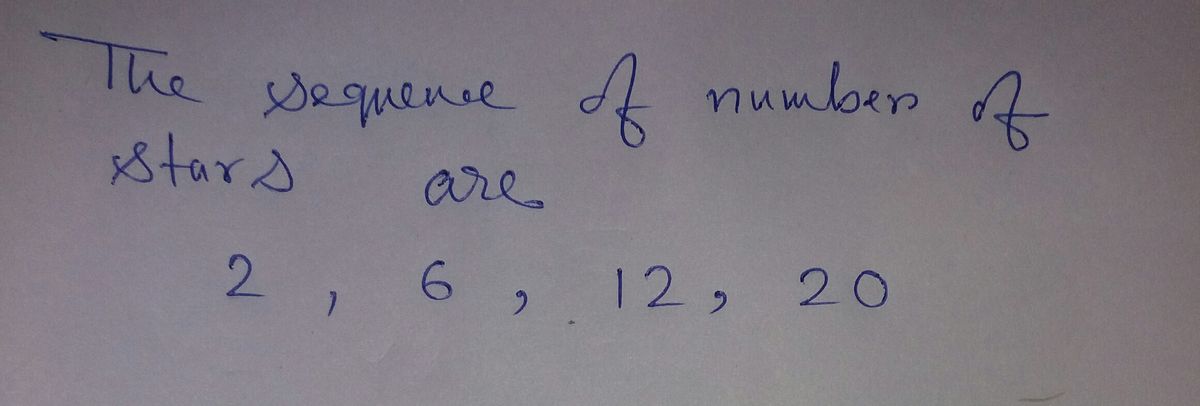 The sequence of number of
stars are
2 , 6 , 12 , 20